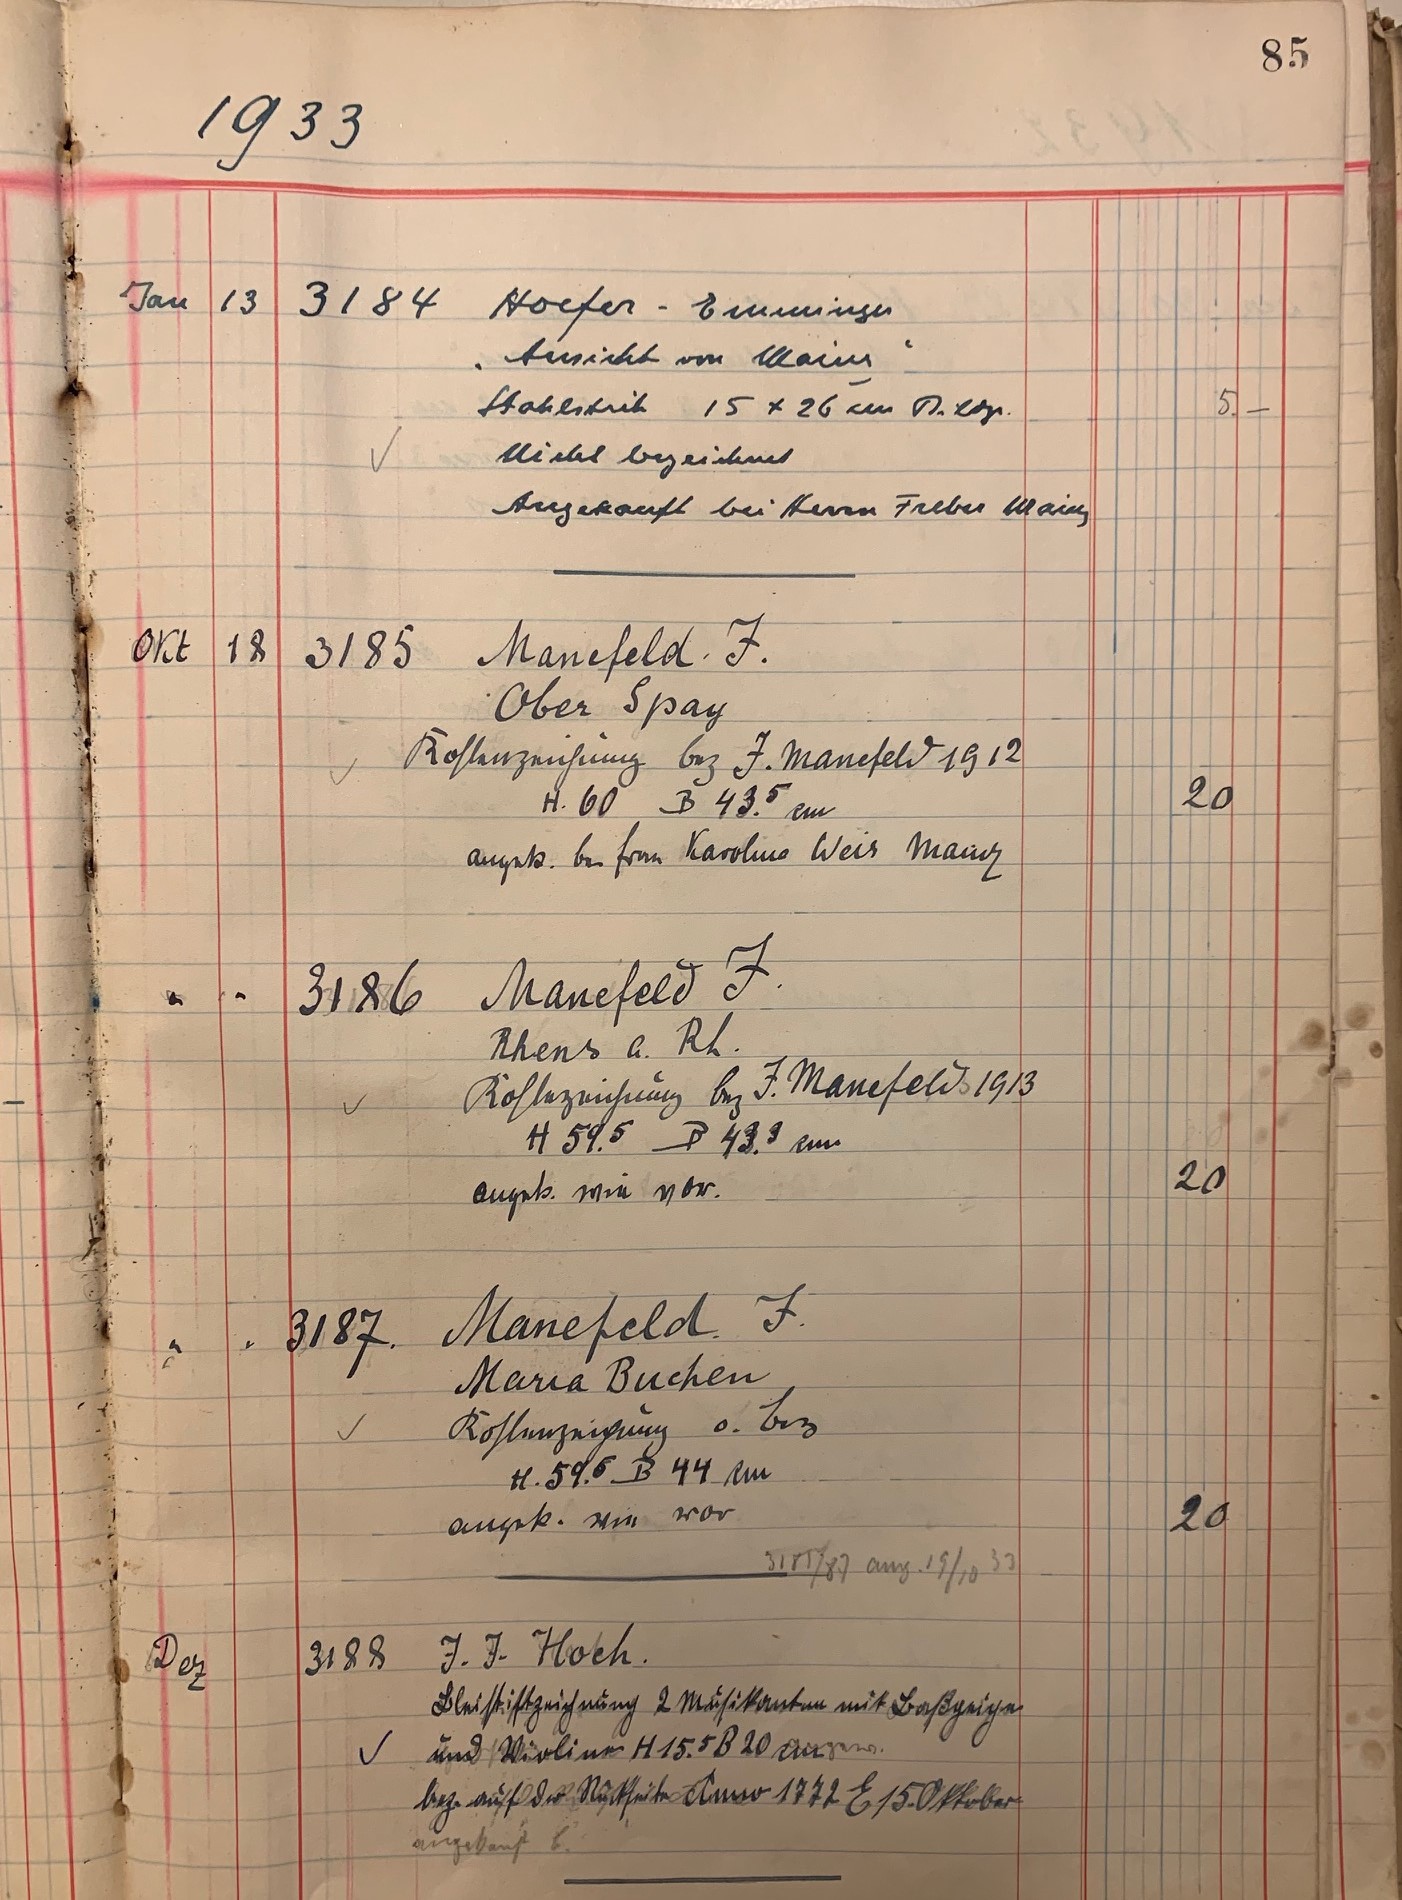 85
1933
Jan 13 3184 Hoefer - Emminger
"Ansicht von Mainz"
Stahlstich 15 x 26 cm 5.—
Nicht bezeichnet
Angekauft bei Herrn Mainz
Okt 18 3185 Manefeld. F.
Ober Spay
Kohlenzeichnung bez F. Manefeld 1912
H. 60 B 43.5 cm 20
angek. bei frau Karoline Weis Mainz
" " 3186 Manefeld F.
Rhens a. Rh.
Kohlezeichnung bez F. Manefeld 1913
H 59.5 B 43.3 cm
angek. wie vor. 20
" " 3187. Manefeld. F.
Maria Buchen
Kohlenzeichnung o. bez
H. 59.5 B 44 cm
angek. wie vor 20
3185/87 ang. 19/10 33
Dez 3188 J. J. Hoch.
Bleistiftzeichnung 2 Musikanten mit Baßgeige
und Violine H 15.5 B 20 cm
bez. auf der Rückseite Anno 1772 E 15. Oktober
angekauft b.